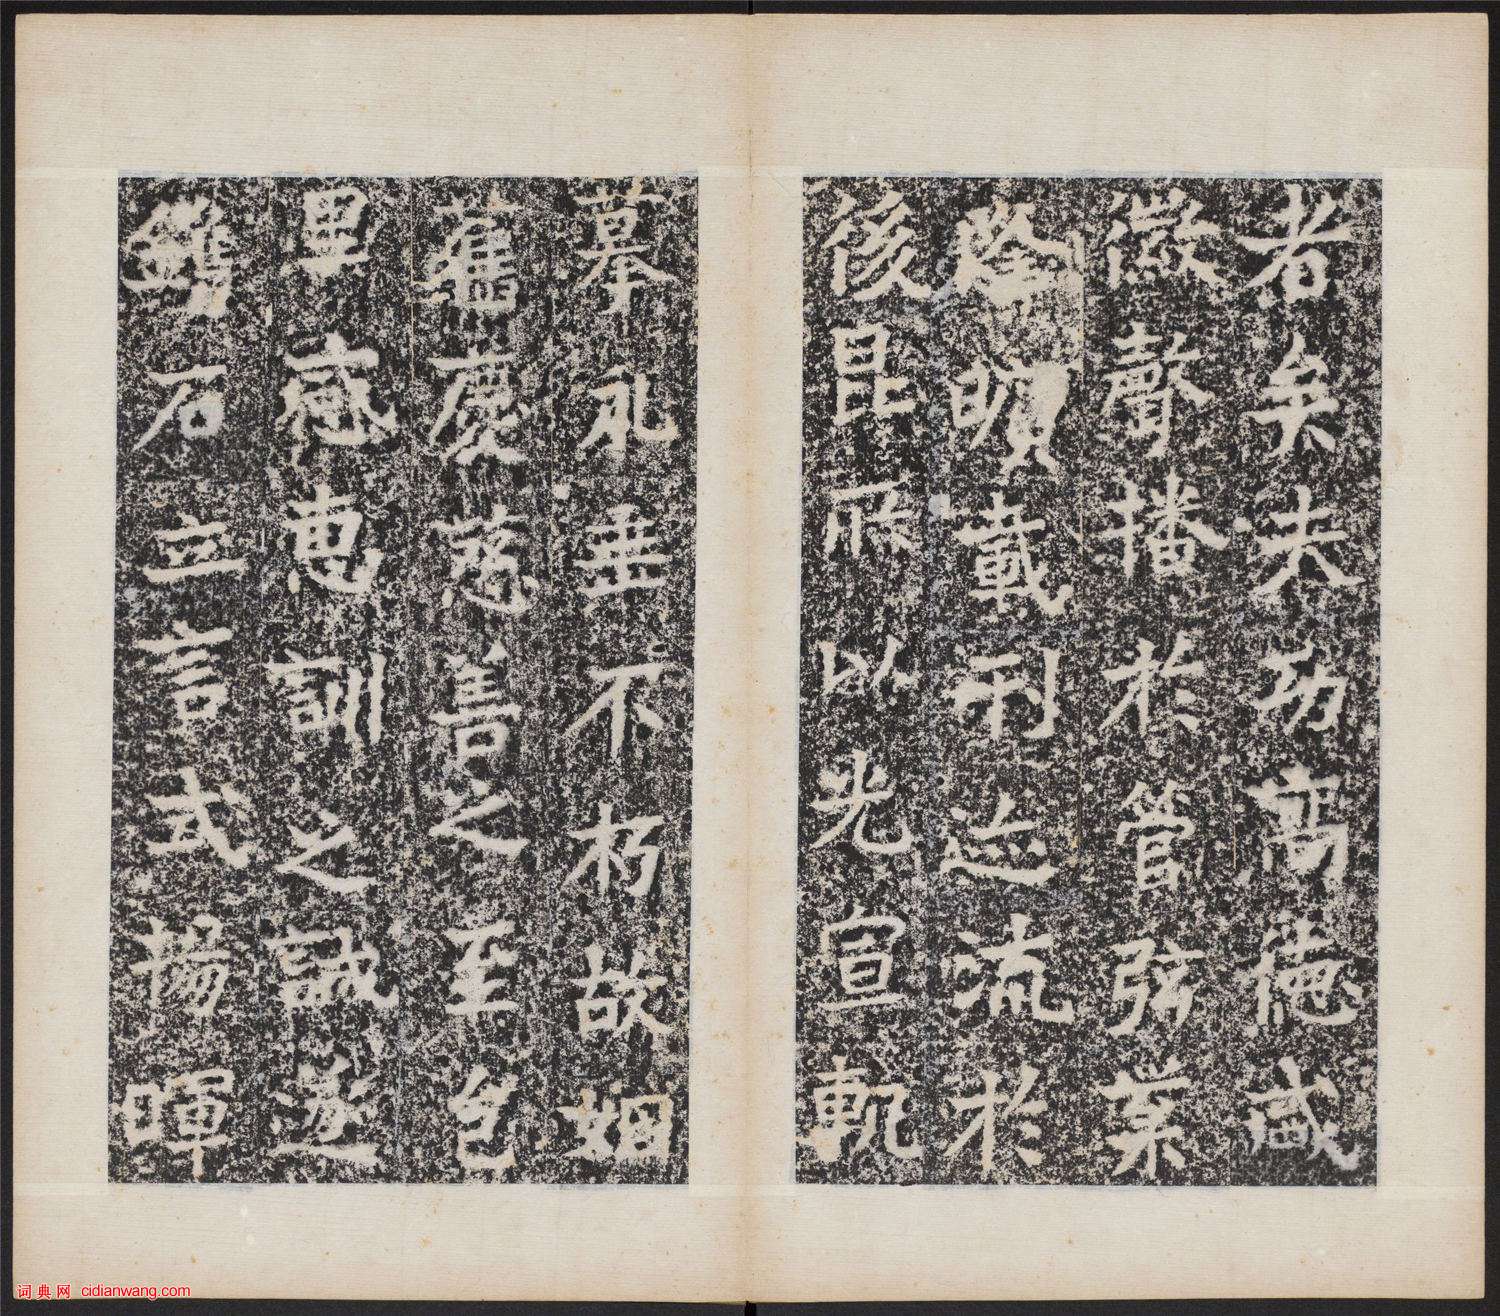 者矣夫功高德盛
徽聲播於管弦業
隆曠載刊迹流於
後昆所以光宣軌
摹永垂不朽故姻
舊慶慈善之至邑
里感惠訓之誠遂
鐫石立言式揚暉
词典网 cidianwang.com